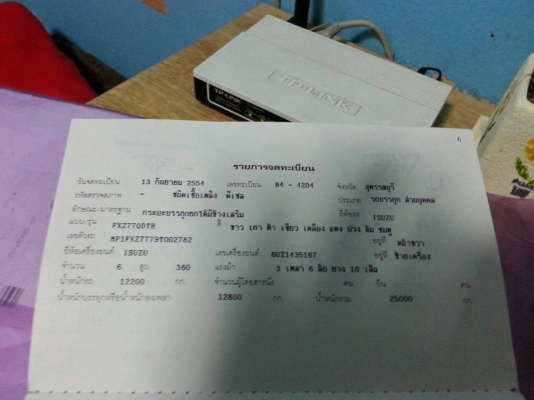 TP-LINK
TP-LINK
6
รายการจดทะเบียน
วันจดทะเบียน 13 กันยายน 2554 เลขทะเบียน 84 - 4204 จังหวัด สุพรรณบุรี
รหัสตรวจสภาพ - ชนิดเชื้อเพลิง ดีเซล ประเภท รถบรรทุก ส่วนบุคคล
ลักษณะ/มาตรฐาน กระบะบรรทุกยกได้มีข้างเสริม ยี่ห้อรถ ISUZU
แบบ/รุ่น FXZ77QDTH สี ขาว เทา ฟ้า เขียว เหลือง แดง ม่วง ส้ม ชมพู
เลขตัวรถ MP1FXZ7779T002782 อยู่ที่ หน้าขวา
ยี่ห้อเครื่องยนต์ ISUZU เลขเครื่องยนต์ 6UZ1435187 อยู่ที่ ซ้ายเครื่อง
จำนวน 6 สูบ 360 แรงม้า 3 เพลา 6 ล้อ ยาง 10 เส้น
น้ำหนักรถ 12200 กก. จำนวนผู้โดยสารนั่ง คน ยืน คน
น้ำหนักบรรทุกหรือน้ำหนักลงเพลา 12800 กก. น้ำหนักรวม 25000 กก.